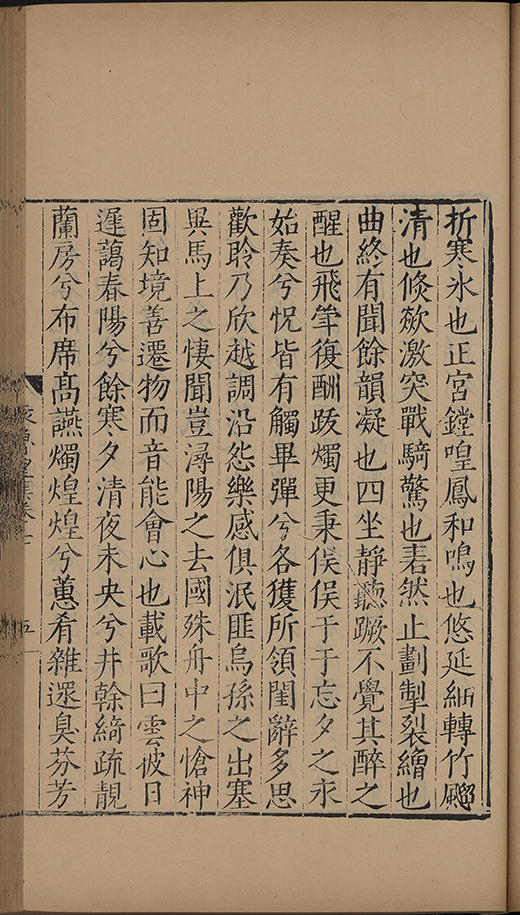 折寒氷也正宮鏜喤鳳和鳴也悠延細轉竹飈
清也倏欻激突戰騎驚也砉然止劃掣裂繒也
曲終有聞餘韻凝也四坐靜聽蹶不覺其醉之
醒也飛觴復酬跋燭更秉俁俁于于忘夕之永
始奏兮怳皆有觸畢彈兮各獲所領閨辭多思
歡聆乃欣越調沿怨樂感俱泯匪烏孫之出塞
異馬上之悽聞豈潯陽之去國殊舟中之愴神
固知境善遷物而音能會心也載歌曰雲披日
遲藹春陽兮餘寒夕清夜未央兮井幹綺疏靚
蘭房兮布席高讌燭煌煌兮蕙肴雜遝臭芬芳
五